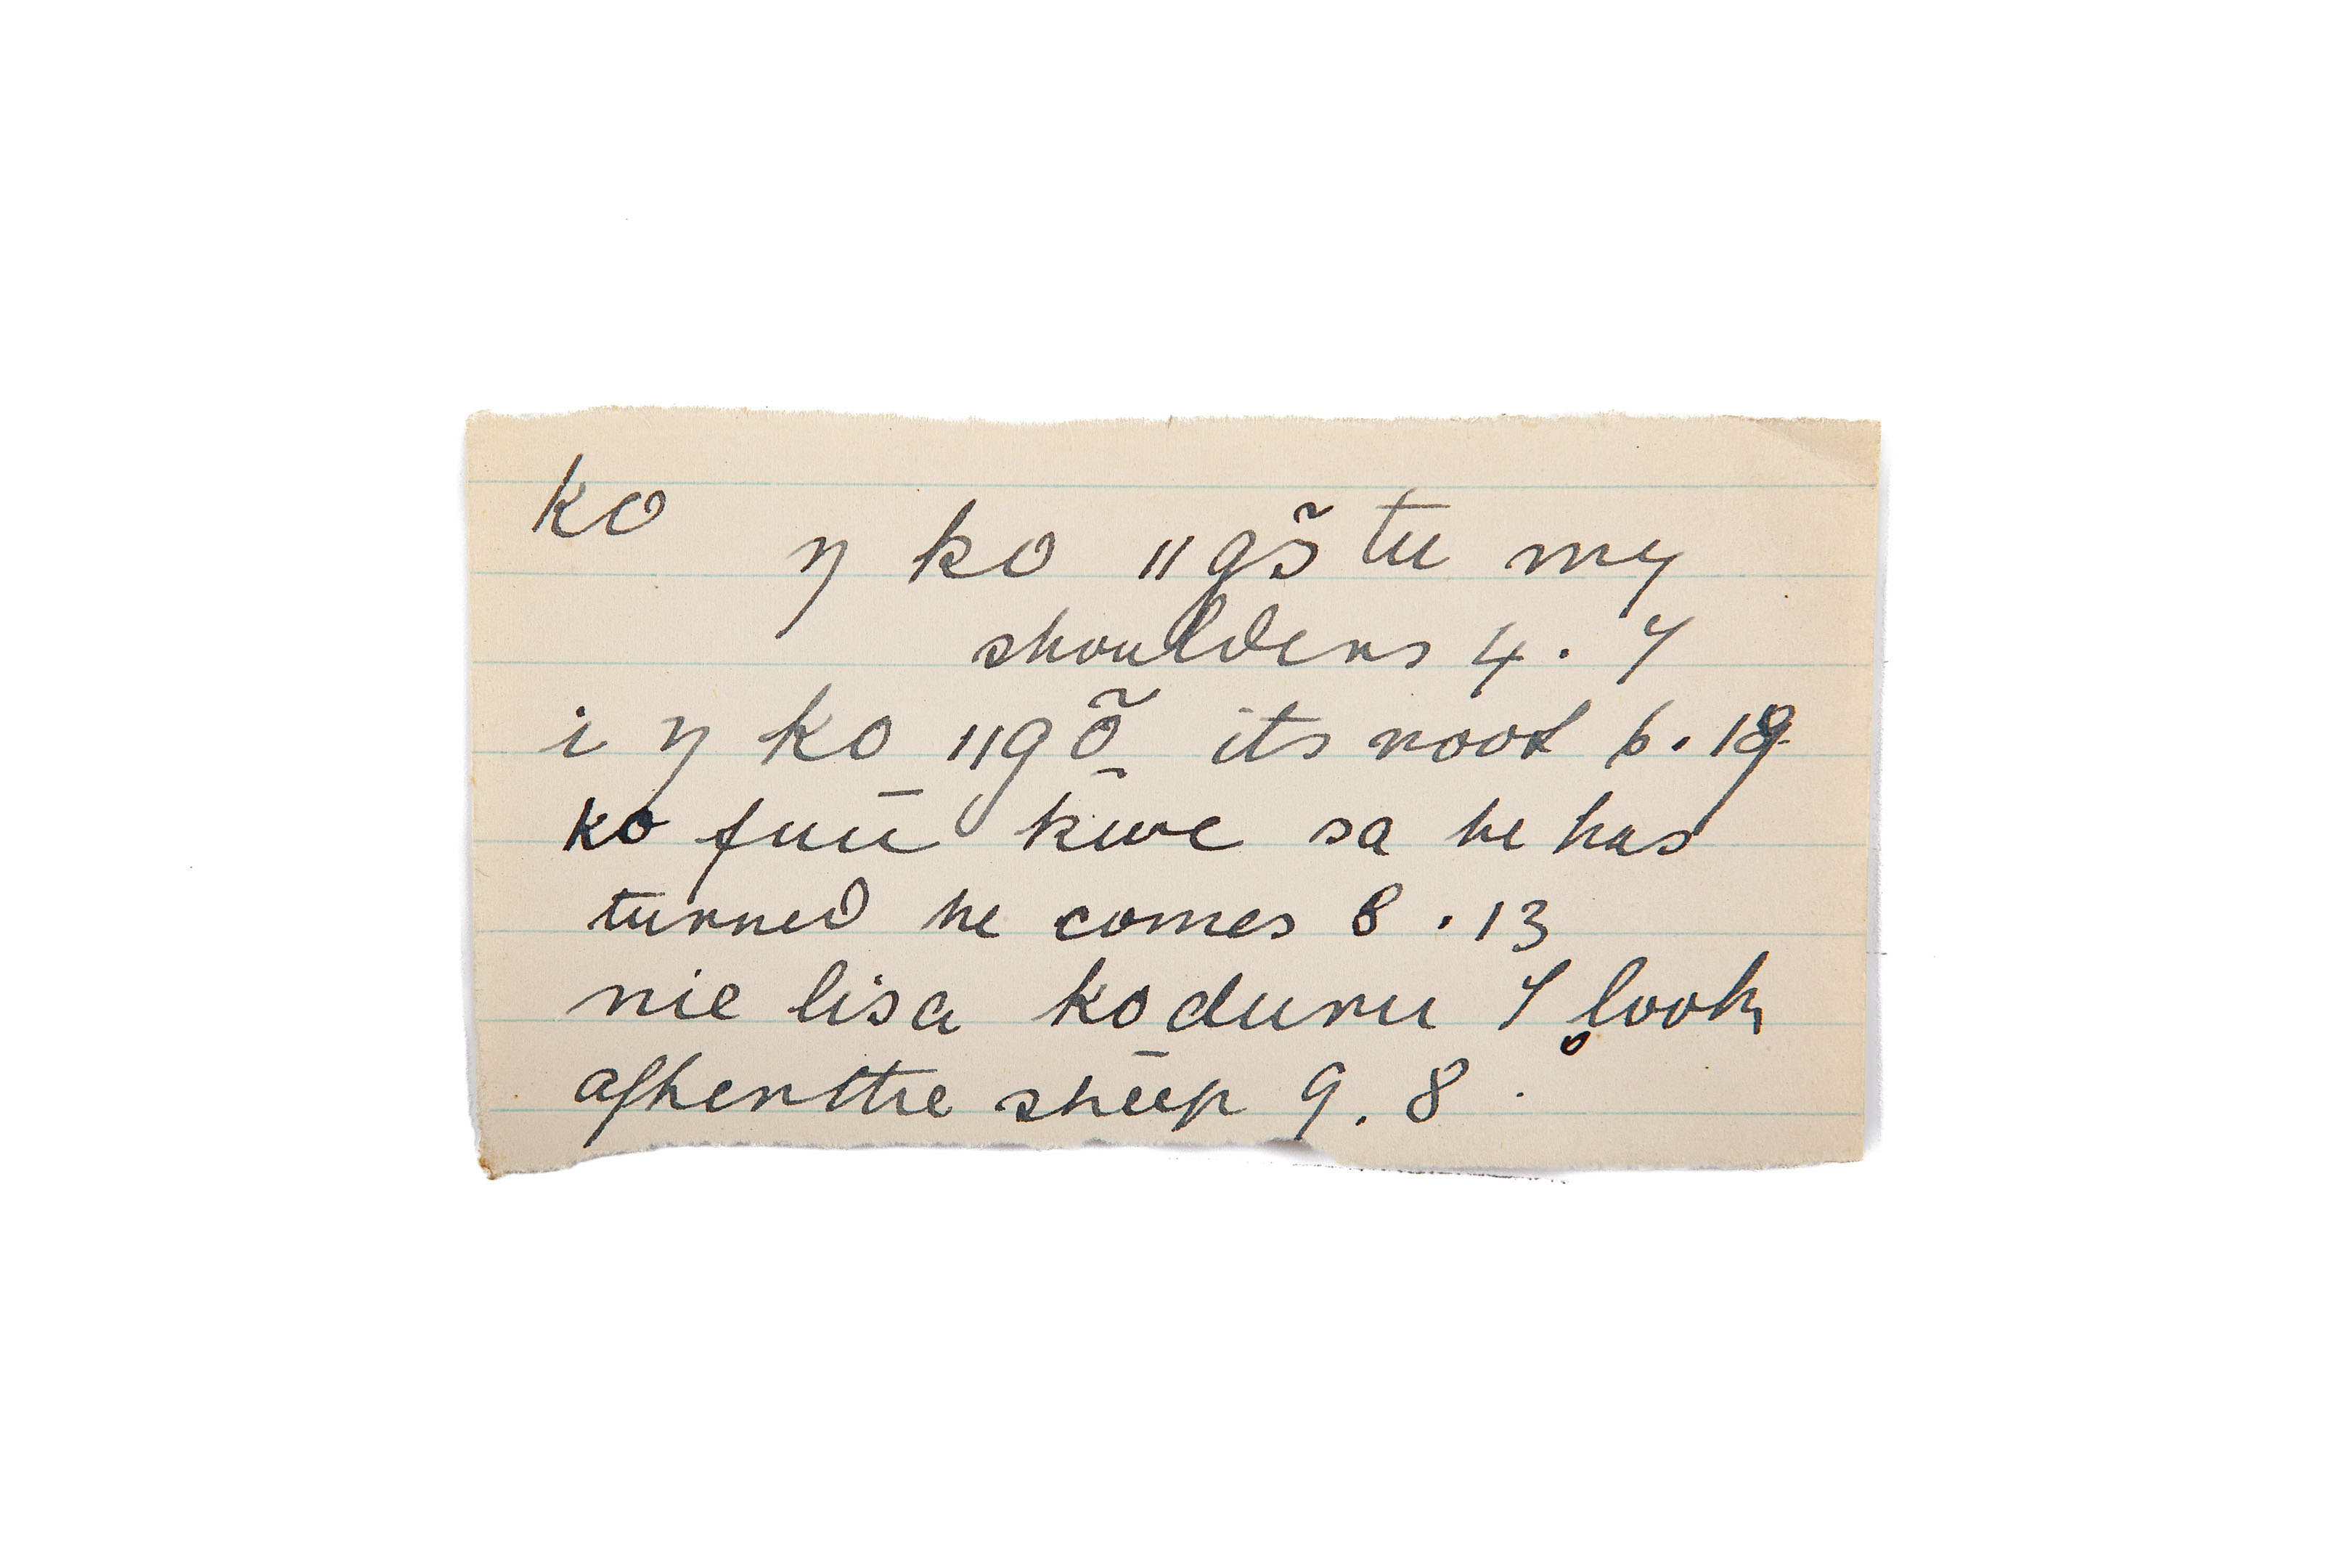 ko
ŋ ko ‖gɔ̃ tu my
shoulders 4. 7
i ŋ ko ‖gõ its root 6. 19
ko fuū k̄we sa he has
turned he comes 8 . 13
nie lisa ko duru I look
after the sheep 9. 8